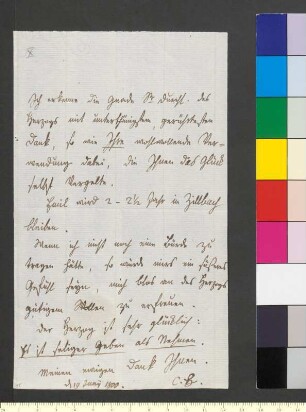 Ich erkenne die Gnade Sr Durchl. des
Herzogs mit unterthänigsten gerührtesten
Dank, so wie Ihre wohlwollende Ver-
wendung dabei, die Ihnen das Glück
selbst vergelte.
Emil wird 2 - 2½ Jahr in Zillbach
bleiben.
Wenn ich nicht noch eine Bürde zu
tragen hätte, so würde mirs ein süßeres
Gefühl seyn, mich blos an des Herzogs
gütigem Wollen zu erfreuen.
Der Herzog ist sehr glücklich:
Es ist seliger Geben als Nehmen.
Meinen ewigen Dank Ihnen.
d. 19 1800. C. B.